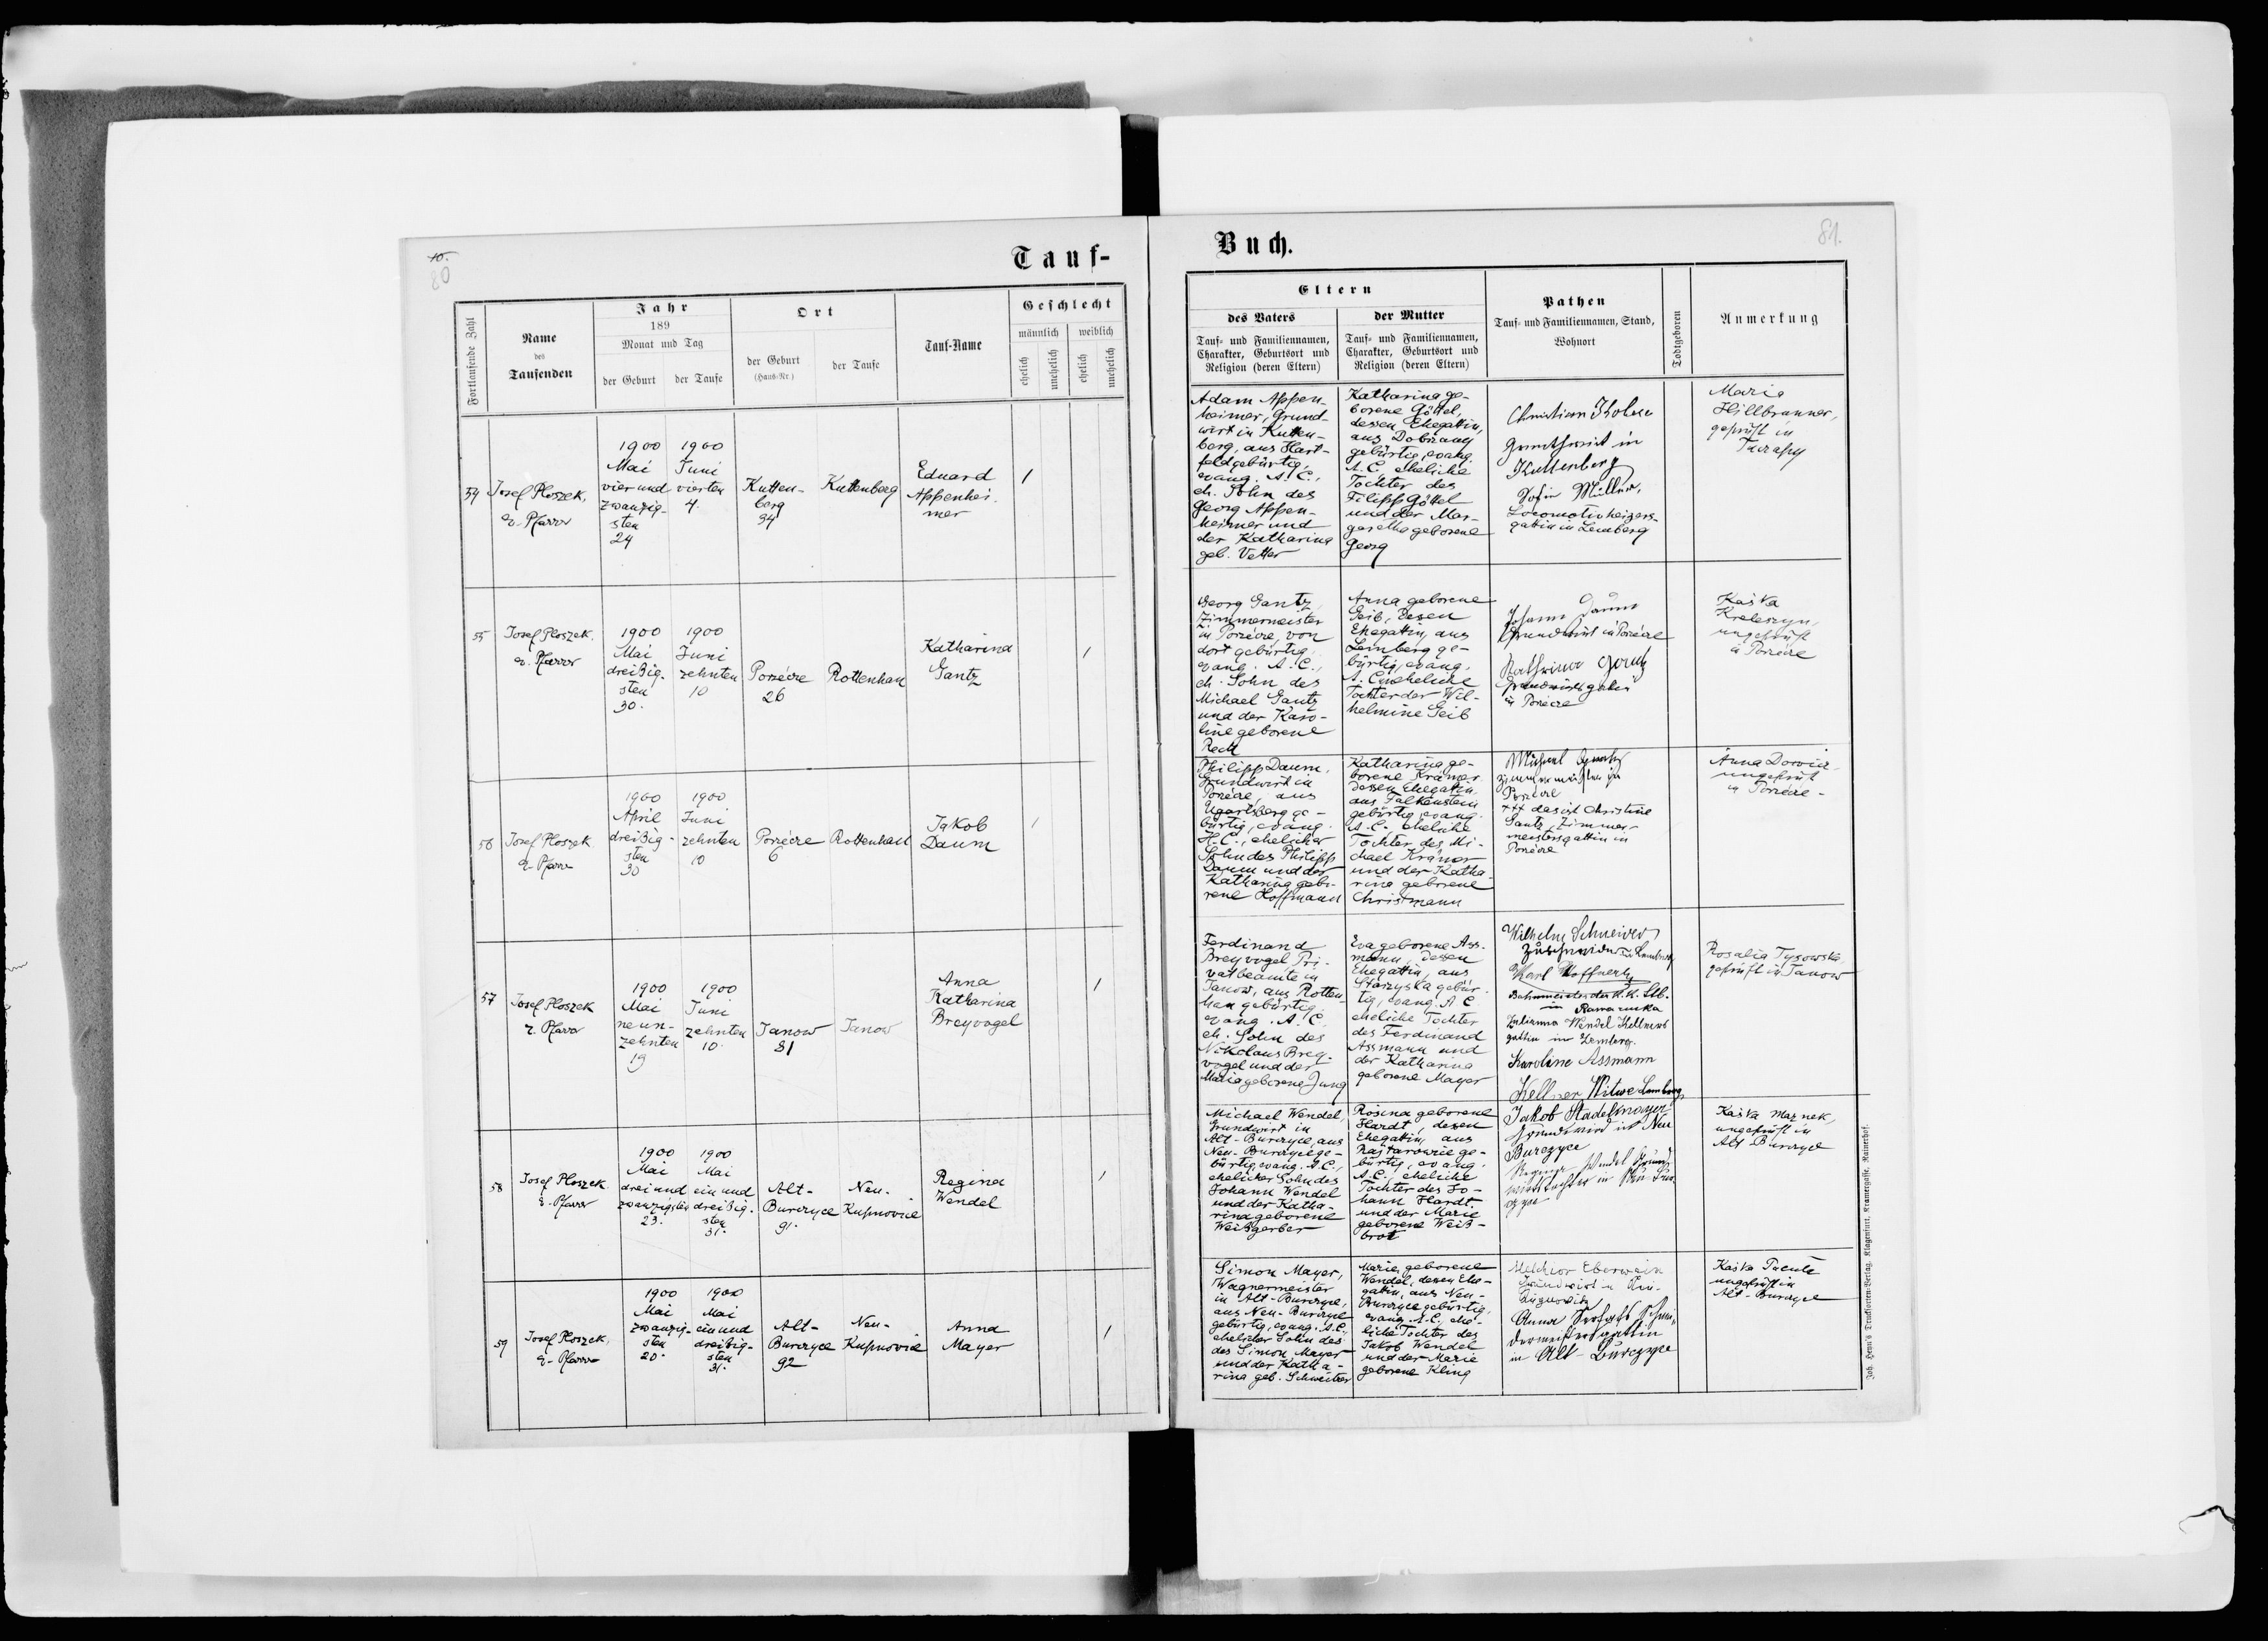 10.
80
Tauf-
Fortlaufende Zahl
Name
des
Taufenden
Jahr
189
Monat und Tag
der Geburt
der Taufe
Ort
der Geburt
(Haus-Nr.)
der Taufe
Tauf-Name
Geschlecht
männlich
weiblich
ehelich
unehelich
ehelich
unehelich
54
Josef Ploszek,
ev. Pfarrer
1900
Mai
vier und
zwanzig-
sten
24
1900
Juni
vierten
4.
Kutten-
berg
34
Kuttenberg
Eduard
Appenhei-
mer
1
55
Josef Ploszek,
ev. Pfarrer
1900
Mai
dreißig-
sten
30.
1900
Juni
zehnten
10
Porzécze
26
Rottenhan
Katharina
Gantz
1
56
Josef Ploszek
ev. Pfarrer
1900
April
dreißig-
sten
30
1900
Juni
zehnten
10
Porzécze
6
Rottenhan
Jakob
Daum
1
57
Josef Ploszek
ev. Pfarrer
1900
Mai
neun-
zehnten
19
1900
Juni
zehnten
10.
Janow
81
Janow
Anna
Katharina
Breyvogel
1
58
Josef Ploszek
ev. Pfarrer
1900
Mai
drei und
zwanzigsten
23.
1900
Mai
ein und
dreißig-
sten
31.
Alt-
Burczyce
91.
Neu-
Kupnovice
Regina
Wendel
1
59
Josef Ploszek,
ev. Pfarrer
1900
Mai
zwanzig-
sten
20.
1900
Mai
ein und
dreißig-
sten
31.
Alt-
Burczyce
92
Neu-
Kupnovice
Anna
Mayer
1
Buch.
81.
Eltern
des Vaters
Tauf- und Familiennamen,
Charakter, Geburtsort und
Religion (deren Eltern)
der Mutter
Tauf- und Familiennamen,
Charakter, Geburtsort und
Religion (deren Eltern)
Pathen
Tauf- und Familiennamen, Stand,
Wohnort
Todtgeboren
Anmerkung
Adam Appen-
heimer, Grund-
wirt in Kutten-
berg, aus Hart-
feld gebürtig,
evang. A. C.,
eh. Sohn des
Georg Appen-
heimer und
der Katharina
geb. Vetter
Katharina ge-
borene Göttel,
dessen Ehegattin,
aus Dobrzany
gebürtig, evang.
A. C., eheliche
Tochter des
Filipp Göttel
und der Mar-
garetha geborene
Georg
Christian
Grundwirt in
Kuttenberg
Sofie Müller,
Locomotivheizers-
gattin in Lemberg
Maria
Hillbrunner,
geprüft in
Georg Gantz,
Zimmermeister
in Porzécze, von
dort gebürtig,
evang. A. C.,
eh. Sohn des
Michael Gantz
und der Karo-
line geborene
Rech
Anna geborene
Geib, dessen
Ehegattin, aus
Lemberg ge-
bürtig, evang.
A. C. uneheliche
Tochter der Wil-
helmine Geib
Johann Daum
Grundwirt in Porzécze
Katharina Gantz
Grundwirtsgattin
in Porzécze
Kaśka
ungeprüft
in Porzécze
Philipp Daum,
Grundwirt in
Porzécze, aus
Ugartsberg ge-
bürtig, evang.
H. C., ehelicher
Sohn des Philipp
Daum und der
Katharina gebo-
rene Hoffmann
Katharina ge-
borene Krämer
dessen Ehegattin
aus Falkenstein
gebürtig, evang.
A. C. eheliche
Tochter des Mi-
chael Krämer
und der Katha-
rina geborene
Christmann
Michael Gantz
Zimmermeister in
Porzécze
+++ das ist Christine
Gantz, Zimmer-
meistersgattin in
Porzécze
Anna
ungeprüft
in Porzécze
Ferdinand
Breyvogel Pri-
vatbeamte in
Janow, aus Rotten-
han gebürtig
evang. A. C.,
eh. Sohn des
Nikolaus Brey-
vogel und der
Maria geborene Jung
Eva geborene Ass-
mann, dessen
Ehegattin, aus
Starzyska gebür-
tig, evang. A C
eheliche Tochter
des Ferdinand
Assmann und
der Katharina
geborene Mayer
Wilhelm Schneider
Zuschneider in Lemberg
Karl
Bahnmeister der k. k. Stb.
in Rawa ruska
Julianna Wendel Kellners
gattin in Lemberg.
Karoline Assmann
Kellner Witwe Lemberg
Rosalia Tysowska
geprüft in Janow
Michael Wendel,
Grundwirt in
Alt-Burczyce, aus
Neu-Burczyce ge-
bürtig, evang. A. C.,
ehelicher Sohn des
Johann Wendel
und der Katha-
rina geborene
Weißgerber
Rosina geborene
Hardt, dessen
Ehegattin, aus
ge-
bürtig, evang.
A. C., eheliche
Tochter des Jo-
hann Hardt
und der Marie
geborene Weiß-
brot
Jakob Stadelmayer
Grundwird in Neu
Burczyce
Wendel
Kaśka
ungeprüft in
Alt Burczyce
Simon Mayer,
Wagnermeister
in Alt-Burczyce,
aus Neu-Burczyce
gebürtig, evang. A. C.,
ehelicher Sohn des
des Simon Mayer
und der Katha-
rina geb. Schweitzer
Marie geborene
Wendel, dessen Ehe-
gattin, aus Neu-
Burczyce gebürtig,
evang. A. C., ehe-
liche Tochter des
Jakob Wendel
und der Marie
geborene Kling
Melchior Eberwein
Grundwirt
Anna
in Alt-Burczyce
Kaśka
ungeprüft in
Alt-Burczyce
Joh. Heyn's Drucksorten-Verlag. Klagenfurt, Kramergasse, Rainerhof.